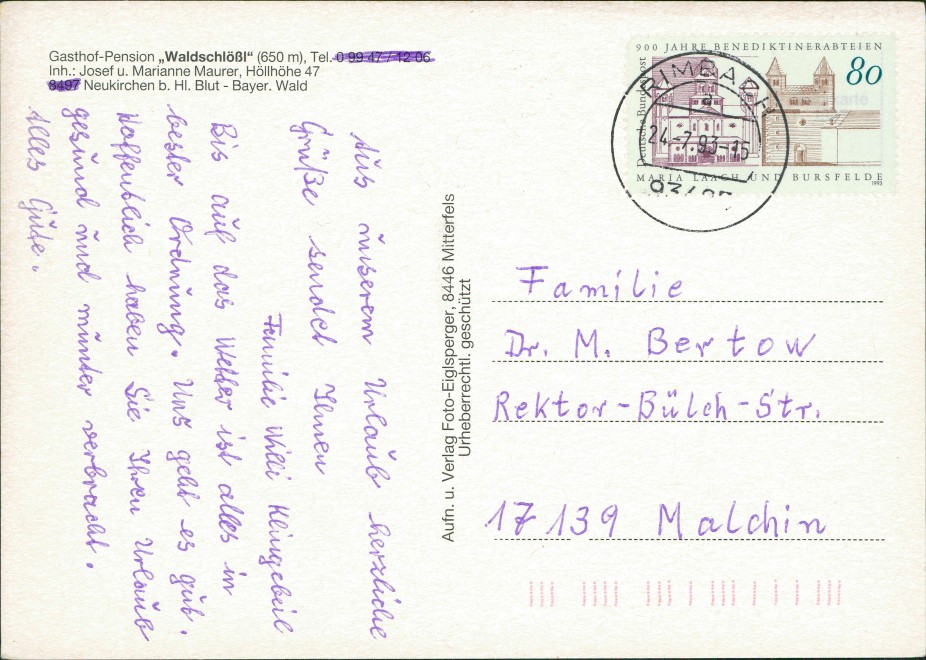 Gasthof-Pension „Waldschlößl“ (650 m), Tel. 0 99 47 / 12 06
Inh.: Josef u. Marianne Maurer, Höllhöhe 47
8497 Neukirchen b. Hl. Blut - Bayer. Wald
Aus unserem Urlaub herzliche
Grüße sendet Ihnen
Familie Willi Klingebeil
Bis auf das Wetter ist alles in
bester Ordnung. Uns geht es gut.
Hoffentlich haben Sie Ihren Urlaub
gesund und munter verbracht.
Alles Gute.
Aufn. u. Verlag Foto-Eiglsperger, 8446 Mitterfels
Urheberrechtl. geschützt
900 JAHRE BENEDIKTINERABTEIEN
80
Deutsche Bundespost
MARIA LAACH UND BURSFELDE
1993
RIMBACH
a
24.-7.93-15
Familie
Dr. M. Bertow
Rektor-Bülch-Str.
17139 Malchin